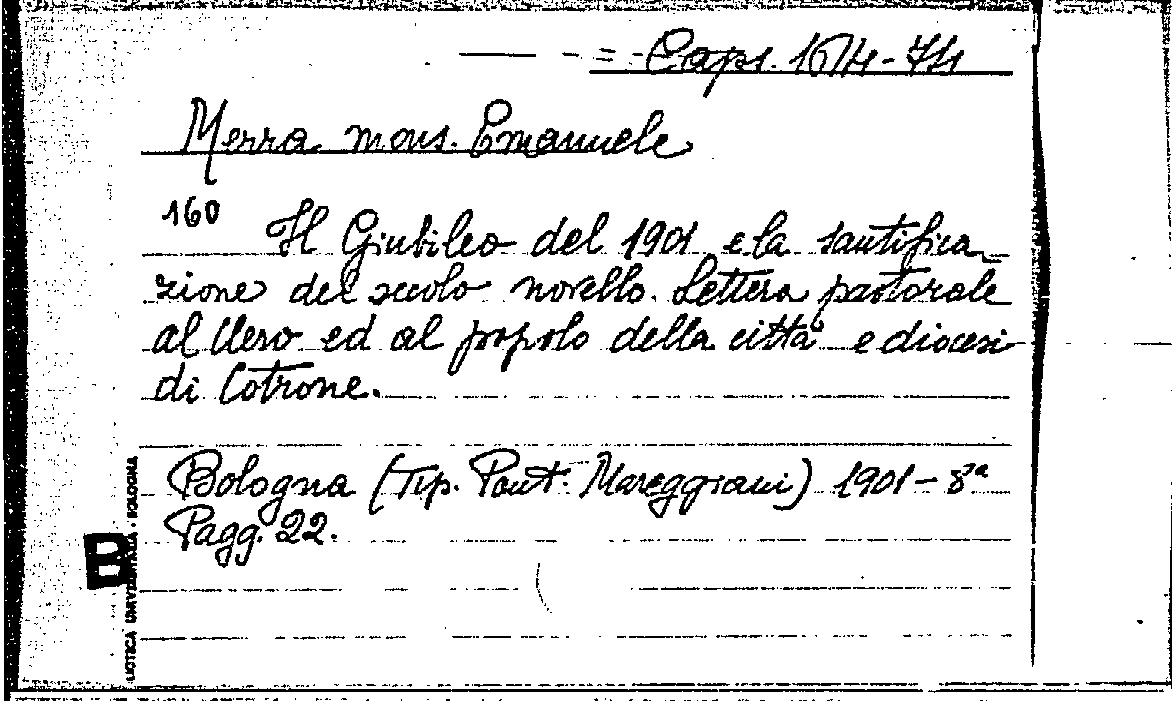 Caps. 1674-74
Merra mons. Emanuele
160
Il Giubileo del 1901 e la santifica
zione del secolo novello. Lettera pastorale
al Clero ed al popolo della città e diocesi
di Cotrone.
Bologna (Tip. Pont. Mareggiani) 1901 - 8ª
Pagg. 22.
B
LIOTECA UNIVERSITARIA - BOLOGNA